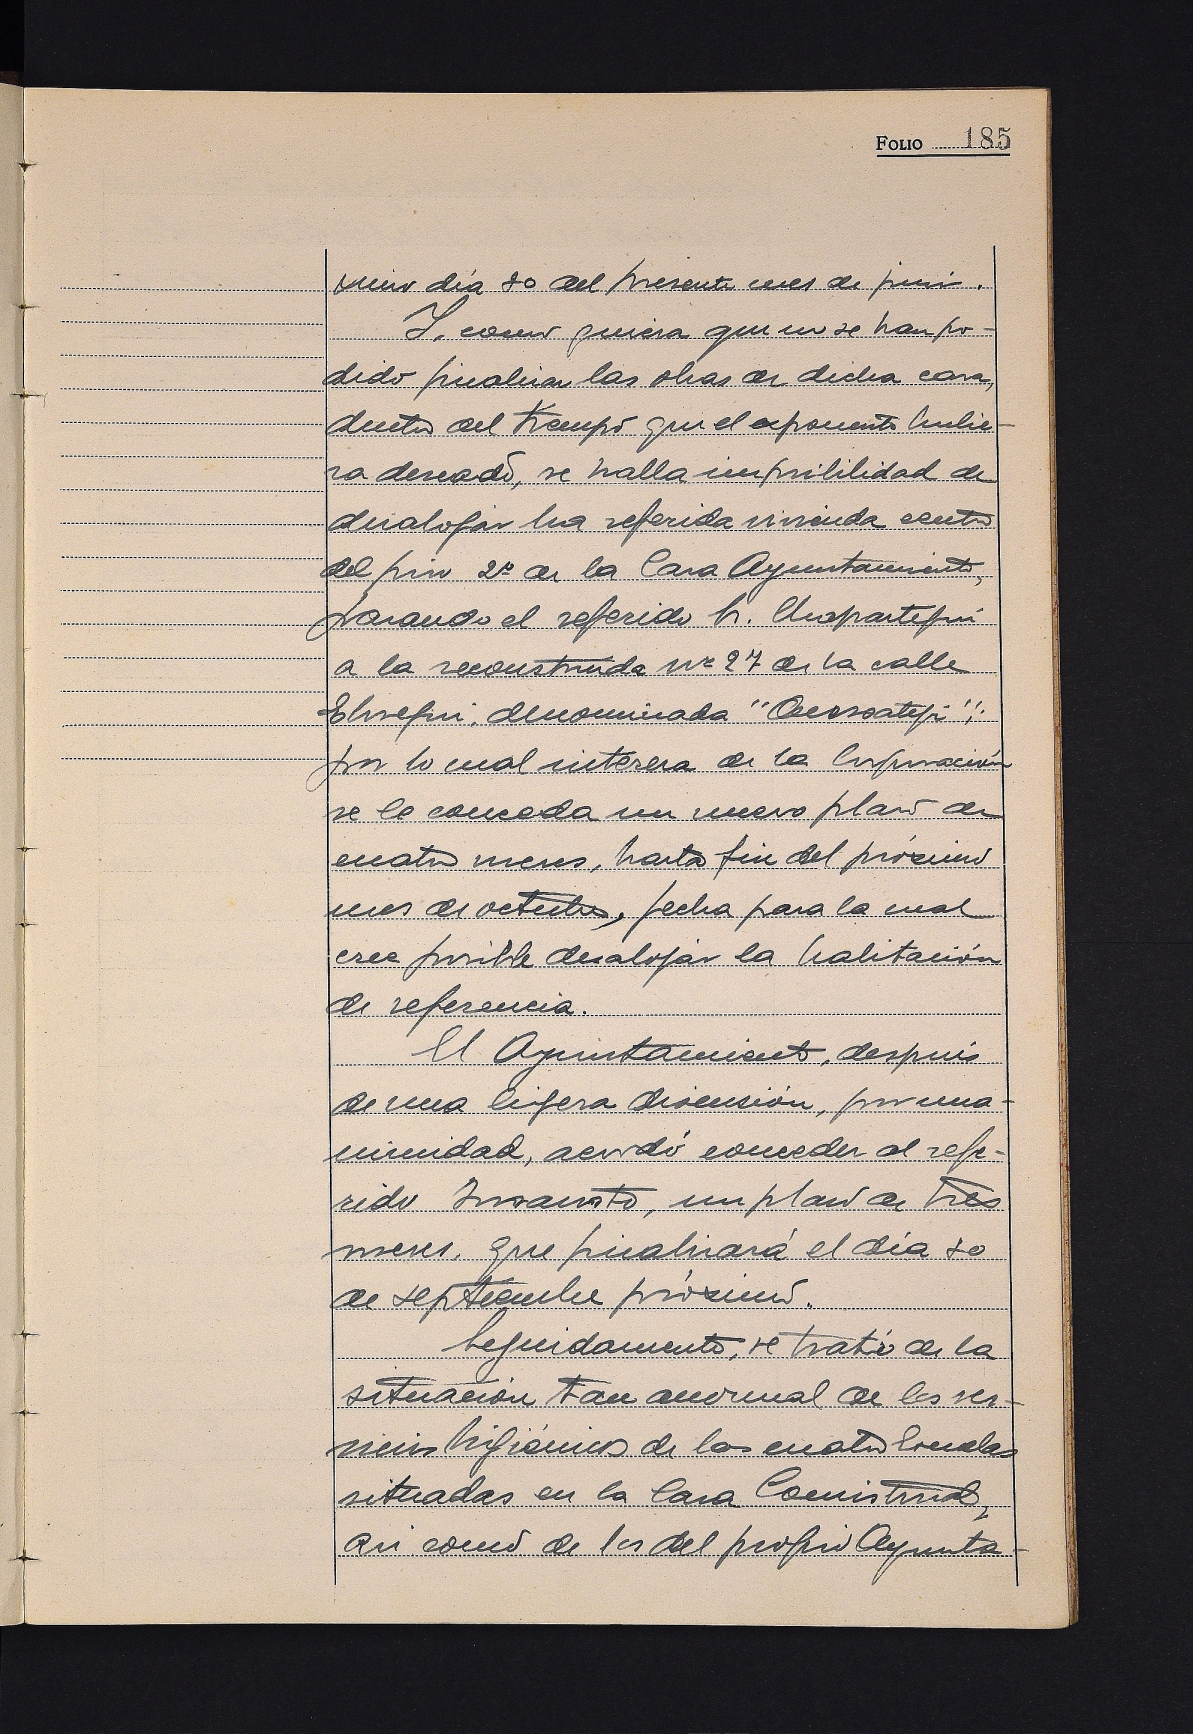 FOLIO 185
ximo día 30 del presente mes de junio.
Y, como quiera que no se han po-
dido finalizar las obras de dicha casa,
dentro del tiempo que el exponente hubie-
ra deseado, se halla imposibilidad de
desalojar la referida vivienda centro
del piso 2º de la Casa Ayuntamiento,
pasando el referido Sr.
a la reconstruida nº 27 de la calle
Elosegui, denominada
por lo cual interesa de la Corporación
se le conceda un nuevo plazo de
cuatro meses, hasta fin del próximo
mes de octubre, fecha para la cual
cree posible desalojar la habitación
de referencia.
El Ayuntamiento, después
de una ligera discusión, por una-
nimidad, acordó conceder al refe-
rido Insausto, un plazo de tres
meses, que finalizará el día 30
de septiembre próximo.
Seguidamente, se trató de la
situación tan anormal de los ser-
vicios higiénicos de las cuatro
situadas en la Casa Consistorial,
asi como de los del propio Ayunta-